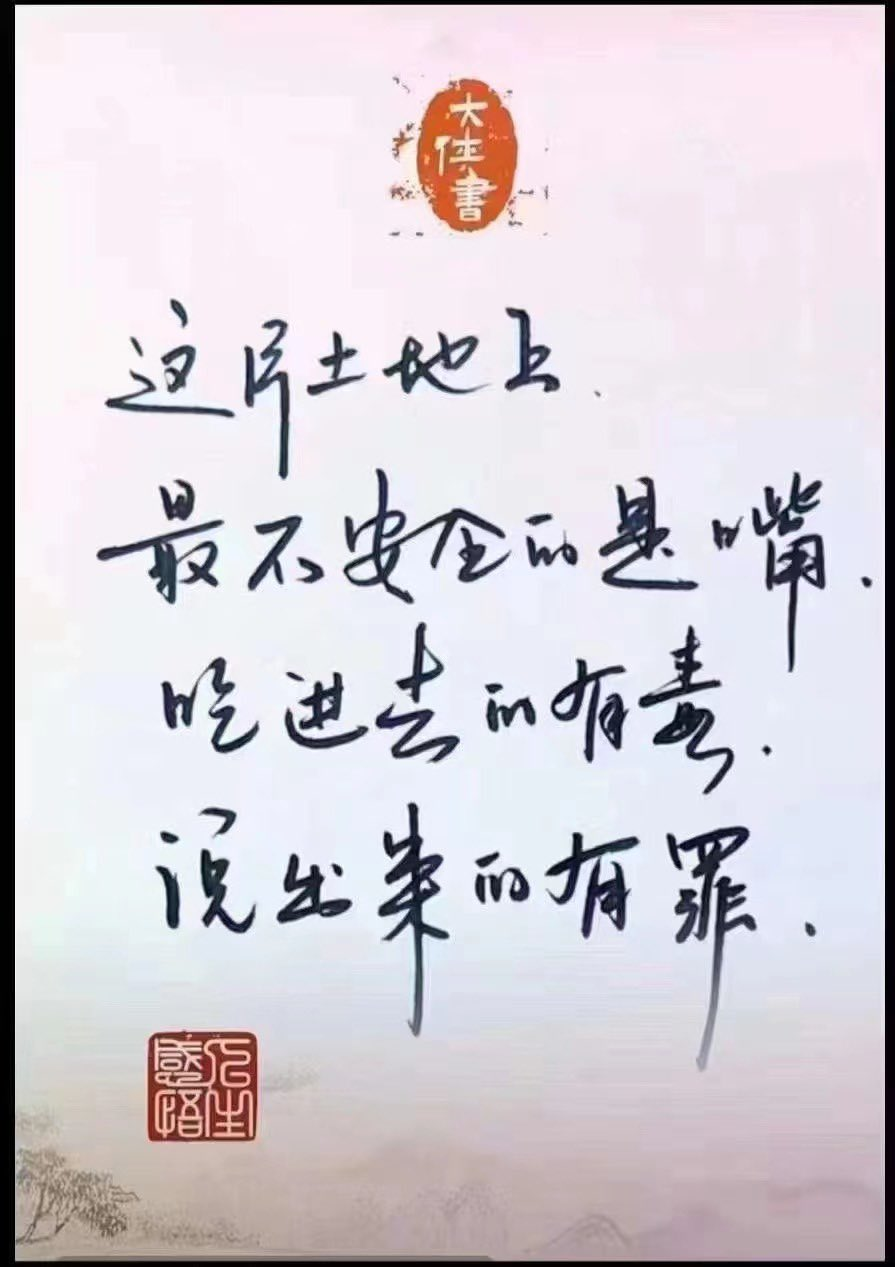 大侠書
这片土地上.
最不安全的是嘴.
吃进去的有毒.
说出来的有罪.
人生感悟